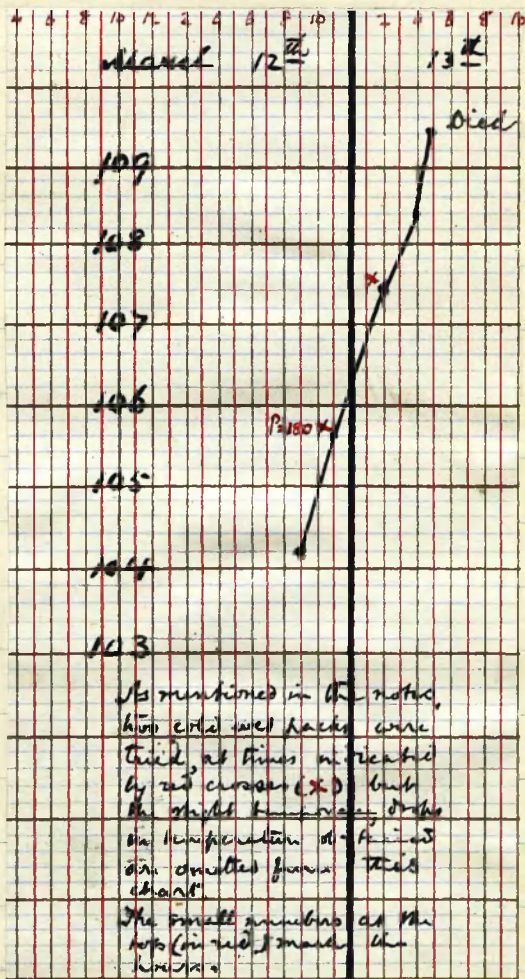 4 6 8 10 12 2 4 6 8 10 2 4 6 8 10
March 12th 13th
Died
109
108
x
107
106
P=180 x
105
104
103
As mentioned in the notes,
two cold wet packs were
tried, at times indicated
by red crosses (x) but
the slight temporary drops
in temperature obtained
are omitted from this
chart.
The small numbers at the
top (in red) mark the
hours.